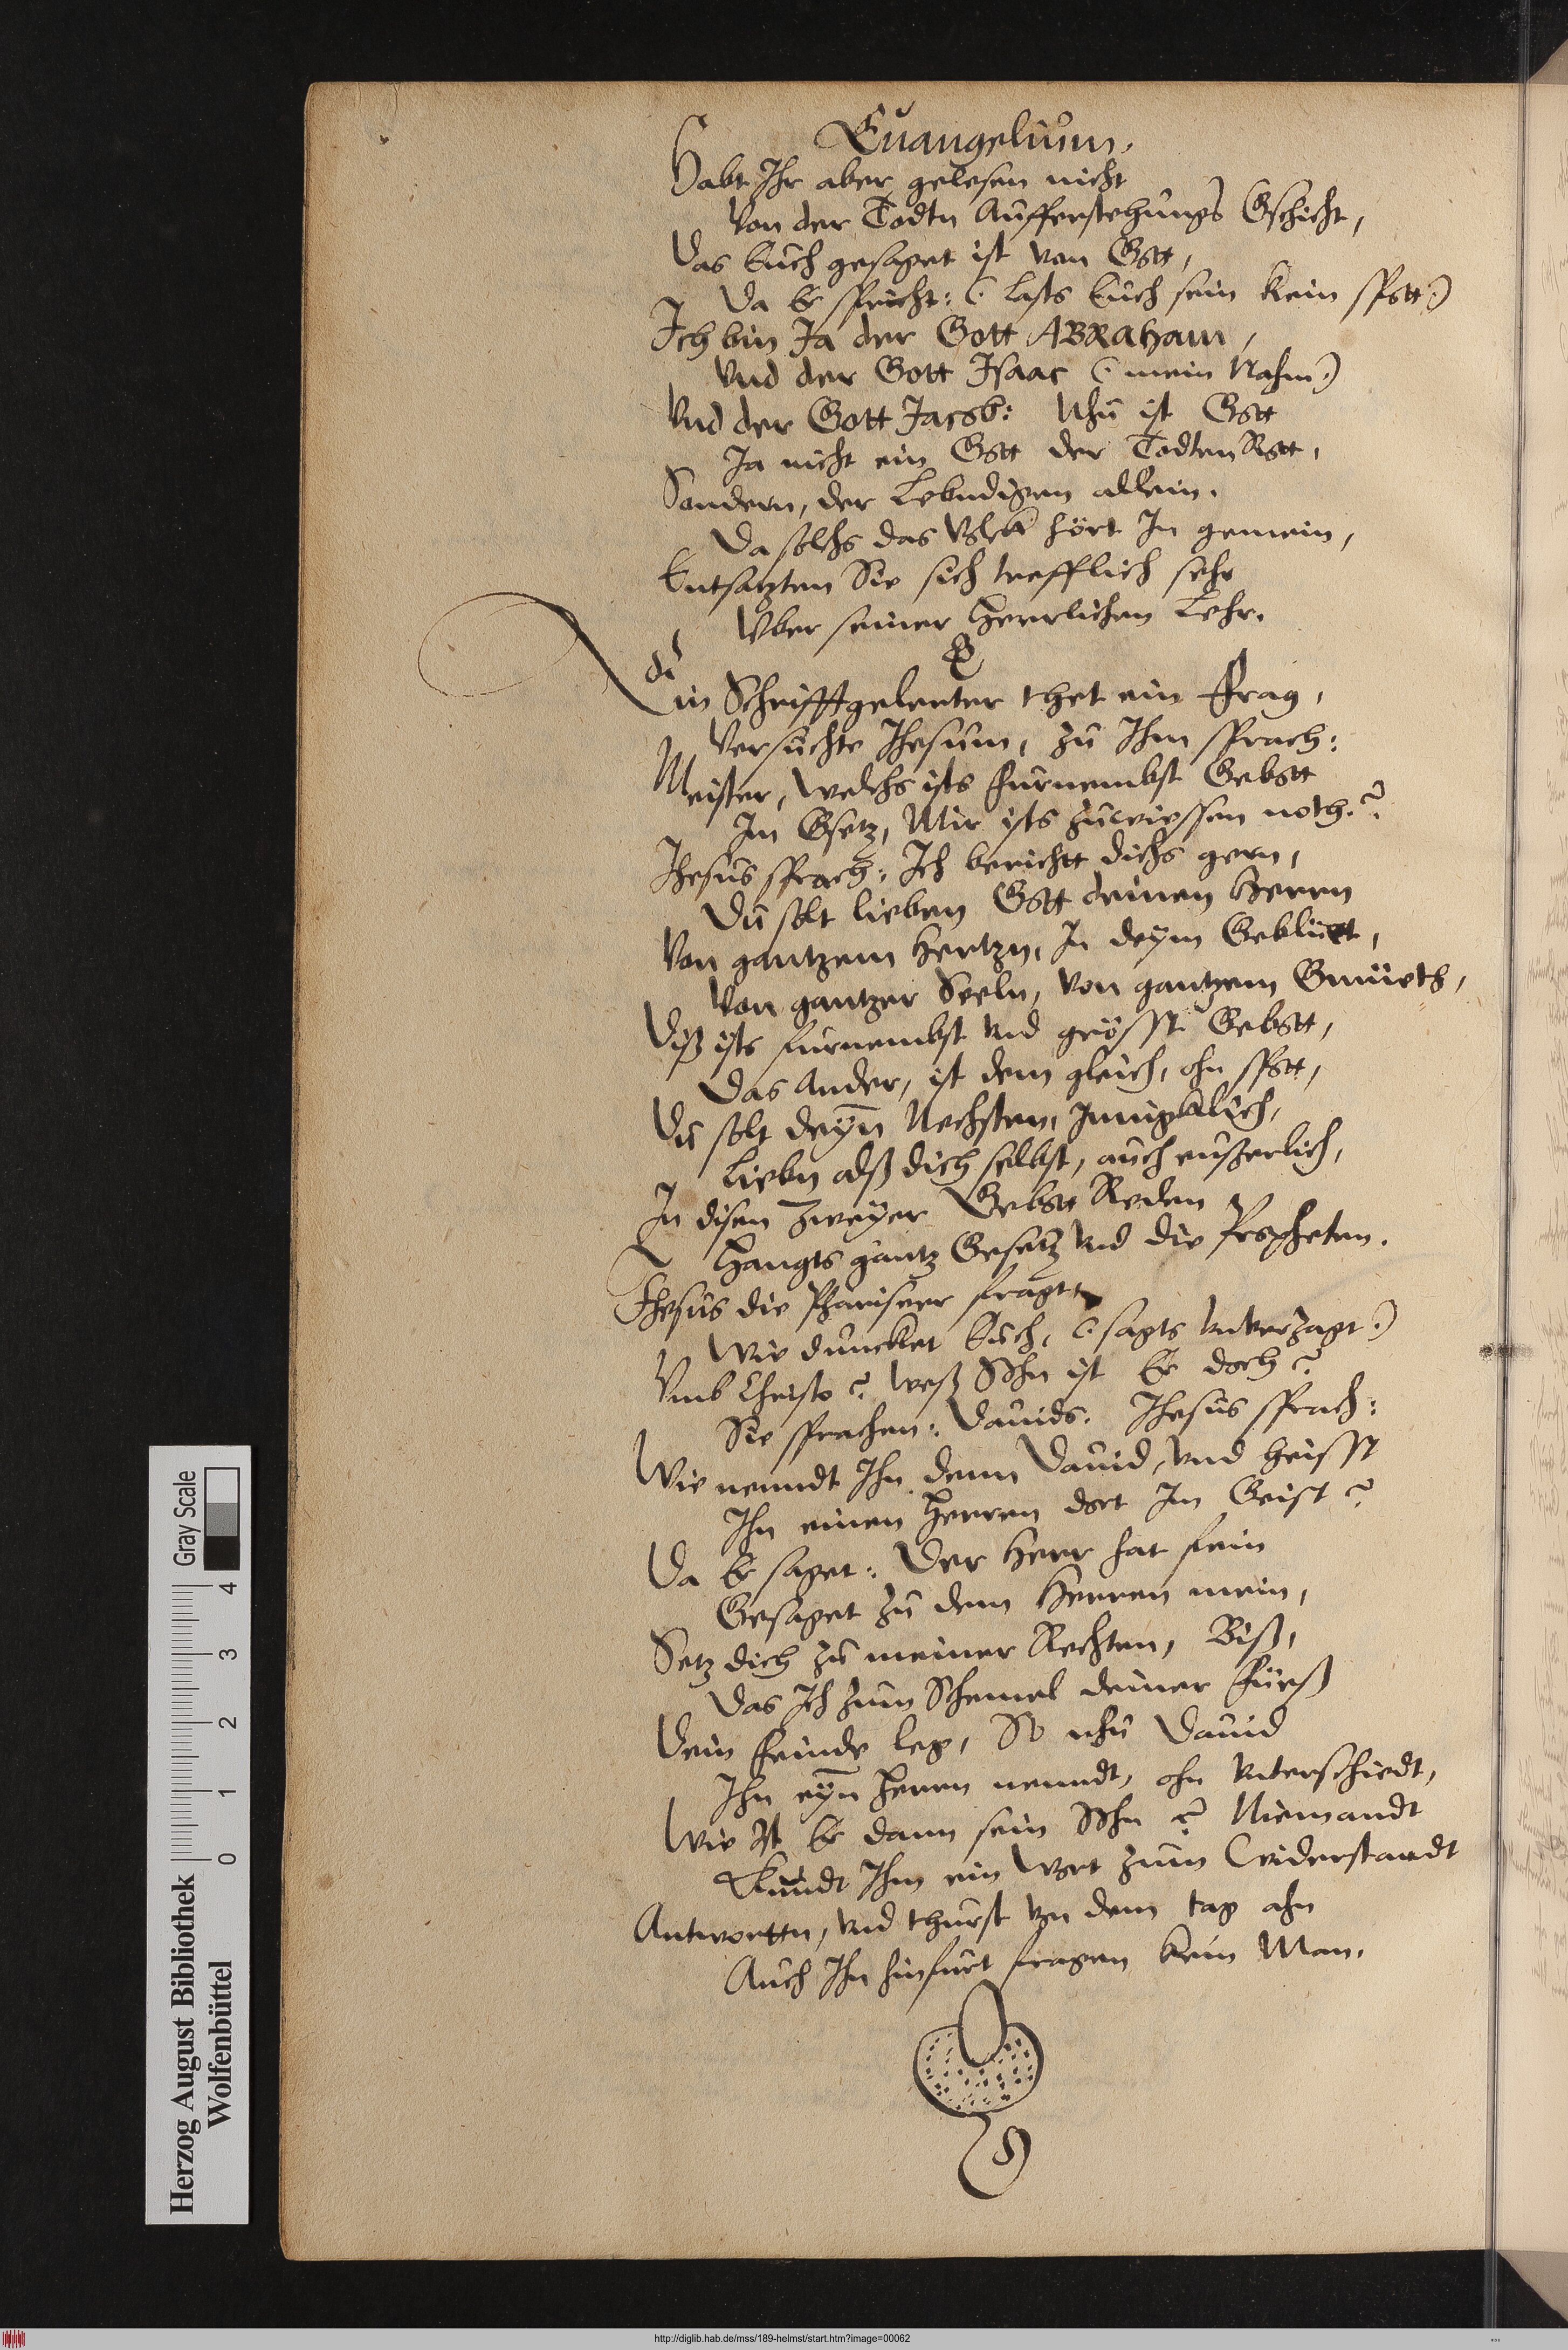 Euangelium.
Habt Ihr aber gelesen nicht
Von der Todtn Aufferstehungs Gschicht,
Das Euch gesaget ist von Gott,
Da Er spricht: (: lasts Euch sein kein spott:)
Ich bin Ja der Gott ABRAHam,
Vnd der Gott Isaac (: mein Nahm:)
Vnd der Gott Jacob: Nhu ist Gott
Ja nicht ein Gott der Todten Rott,
Sondern, der Lebndigen allein.
Da solchs das Volck hört In gemein,
Entsatzten Sie sich trefflich sehr
Vber seiner Herrlichen Lehr.
Ein Schrifftgelerter thet ein Frag,
Versuchte Jhesum, zu Ihm sprach:
Meister, welchs ists furnembst Gebott
Im Gsetz, Mir ists zuwiessen noth.?
Jhesus sprach: Ich bericht dichs gern,
Du solt lieben Gott deinen Herrn
Von gantzem Hertzn, In deym Geblüet,
Von gantzer Seeln, von gantzem Gmüeth,
Diß ists furnembst vnd grösst Gebott,
Das Ander, ist dem gleich, ohn spott,
Du solt deyn Nechsten, Innigklich,
Liebn alß dich selbst, auch eußerlich,
In disen zweyer Gebott Reden
Hangts gantz Gesetz vnd die Propheten.
Jhesus die Phariseer fragtt
Wie duncket Euch, (: sagts vnverzagt:)
Vmb Christo? weß Sohn ist Er doch?
Sie sprachen: Dauids. Jhesus sprach:
Wie nenndt Ihn denn Dauid, vnd heisst
Ihn einen Herren dort Im Geist?
Da Er saget: Der Herr hat fein
Gesaget zu dem Herren mein,
Setz dich zu meiner Rechten, Biß,
Das Ich zum Schemel deiner Füeß
Dein Feinde leg, So nhu Dauid
Ihn eyn Herrn nenndt, ohn vnterschiedt,
Wie Ist Er dann sein Sohn? Niemandt
Kundt Ihm ein Wort zum Widerstandt
Antworttn, vnd thurst von dem tag ahn
Auch Ihn hinfurt fragen kein Man.
Herzog August Bibliothek
Wolfenbüttel
0 1 2 3 4
Gray Scale
http://diglib.hab.de/mss/189-helmst/start.htm?image=00062